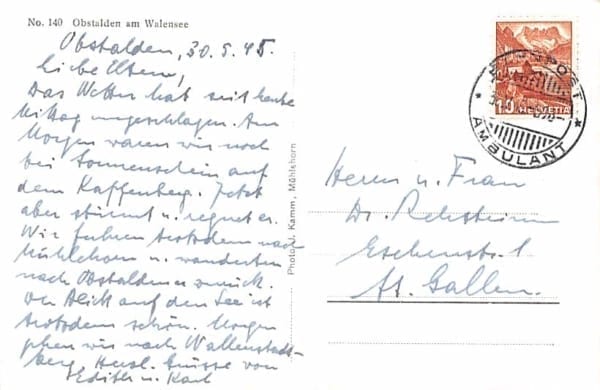 No. 140 Obstalden am Walensee
Obstalden, 30.5.45.
Liebe Eltern,
Das Wetter hat seit heute
Mittag umgeschlagen. Am
Morgen waren wir noch
bei Sonnenschein auf
dem Kaffenberg. Jetzt
aber stürmt u. regnet es.
Wir fuhren trotzdem nach
Mühlehorn u. wanderten
nach Obstalden zurück.
Der Blick auf den See ist
trotzdem schön. Morgen
gehen wir nach Wallenstadt-
berg. Herzl. Grüsse von
Edith u. Karl
Photo J. Kamm, Mühlehorn
10 HELVETIA
AMBULANT
Herrn u. Frau
Dr. Rehsteiner
Eschenstr. 1
St. Gallen.